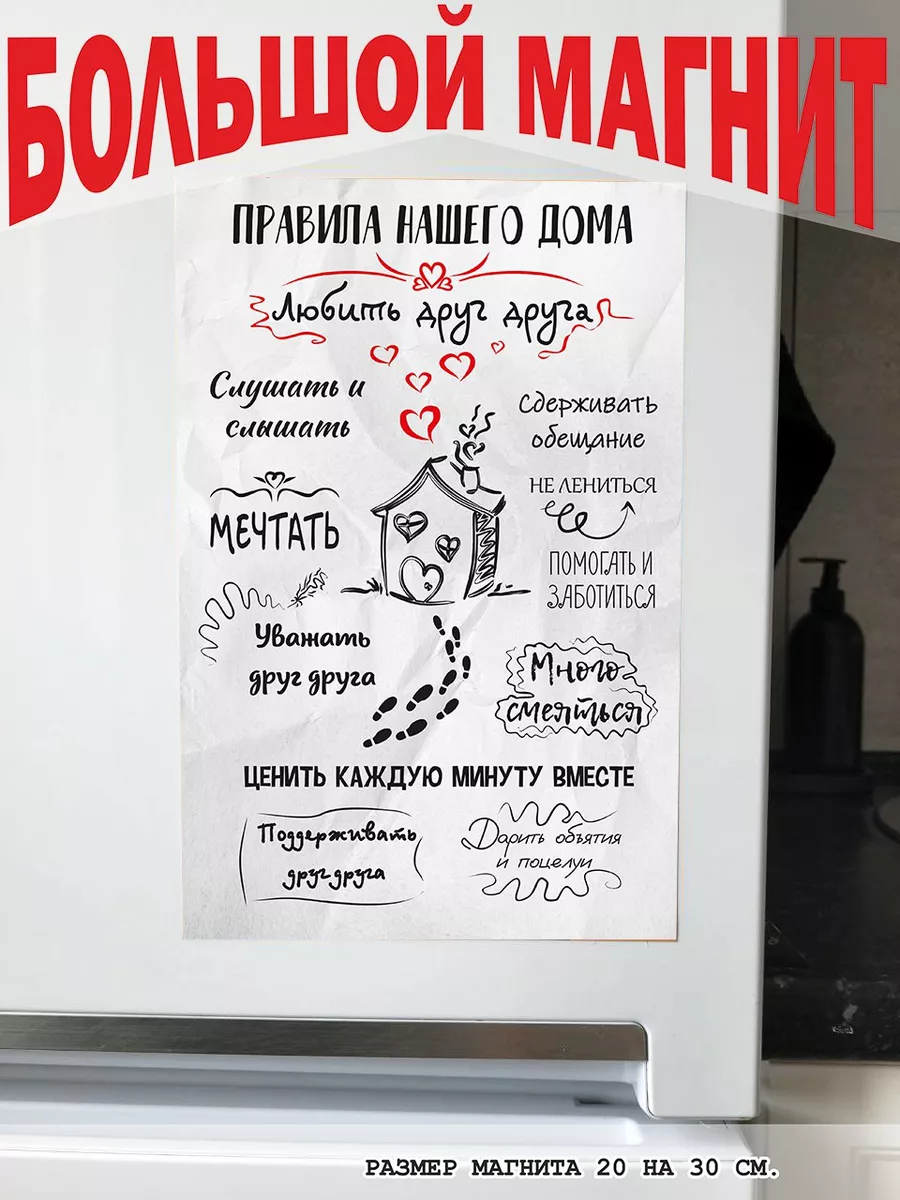 БОЛЬШОЙ МАГНИТ
ПРАВИЛА НАШЕГО ДОМА
Любить друг друга
Слушать и
слышать
Сдерживать
обещание
НЕ ЛЕНИТЬСЯ
МЕЧТАТЬ
ПОМОГАТЬ И
ЗАБОТИТЬСЯ
Уважать
друг друга
Много
смеяться
ЦЕНИТЬ КАЖДУЮ МИНУТУ ВМЕСТЕ
Поддерживать
друг друга
Дарить объятия
и поцелуи
РАЗМЕР МАГНИТА 20 НА 30 СМ.